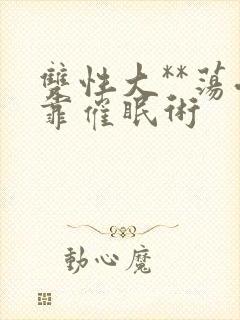 雙性大**蕩
靠催眠術
動心魔